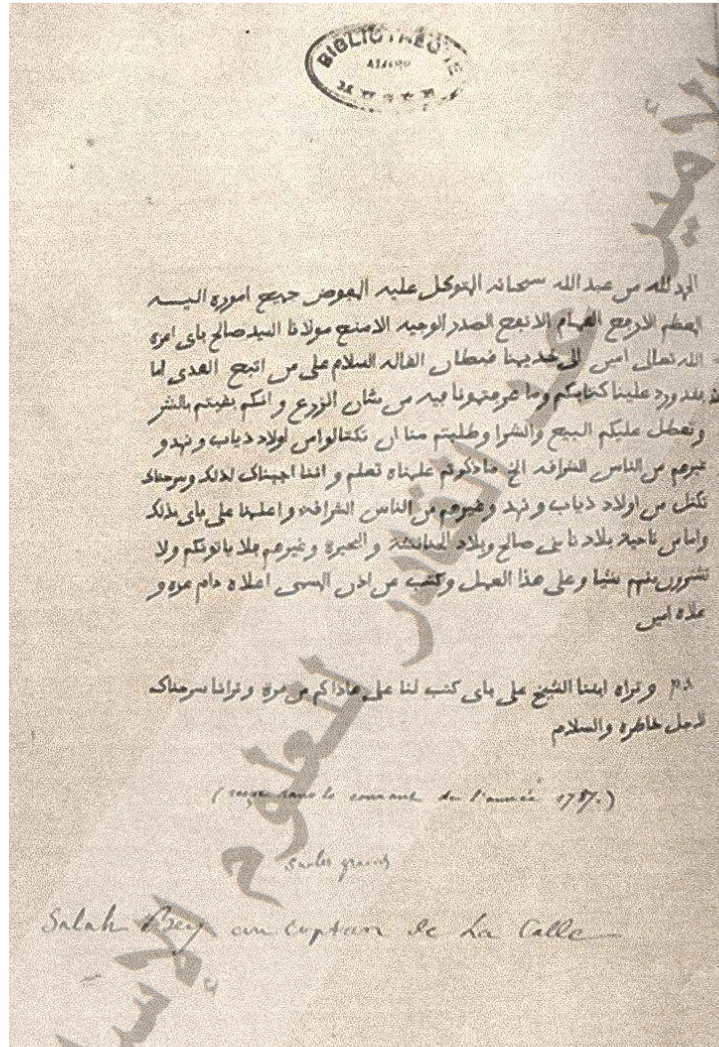 BIBLIOTHÈQUE
ALGER
الحمد لله من عبد الله سبحانه المتوكل عليه المفوض جميع اموره اليــه
المعظم الارفع الهمام الانفع الصدر الوجيه الامنع مولانا السيد صالح باي امره
الله تعالى امين الى خديمنا فبطان القاله السلام على من اتبع الهدى اما
بعد فقد ورد علينا كتابكم وما عرفتمونا فيه من شان الزرع و انكم بقيتم بالشر
وتعطل عليكم البيع والشرا وطلبتم منا ان تكتالوا من اولاد ذياب و نهد و
غيرهم من الناس الشرافه الخ ما ذكرتم علمناه تعلم و اننا اجبناك لذلك وسرحناك
تكتل من اولاد ذياب و نهد و غيرهم من الناس الشرافه و اعلمنا علي باي بذلك
واما من ناحية بلادنا بني صالح وبلاد الحنانشة و البحيرة وغيرهم فلا ياتونكم ولا
تشترون منهم شيا وعلى هذا العمل وكتب عن اذن المسمى اعلاه دام عزه و
علاه امين
وتراه ابننا الشيخ علي باي كتب لنا على هاذاكم من مرة وترانا سرحناك
لاجل خاطره والسلام
(reçue dans le courant de l'année 1787.)
Sur les grains
Salah Bey au Captain de La Calle
الأمير عبد القادر للعلوم الإسلا